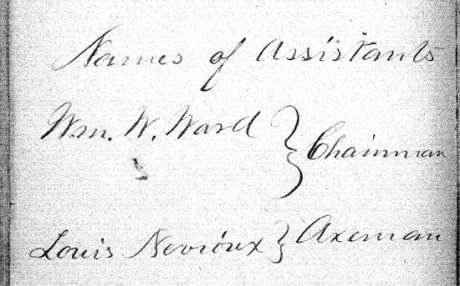 Names of Assistants
Wm. W. Ward } Chainman
Louis Nevioux } Axeman